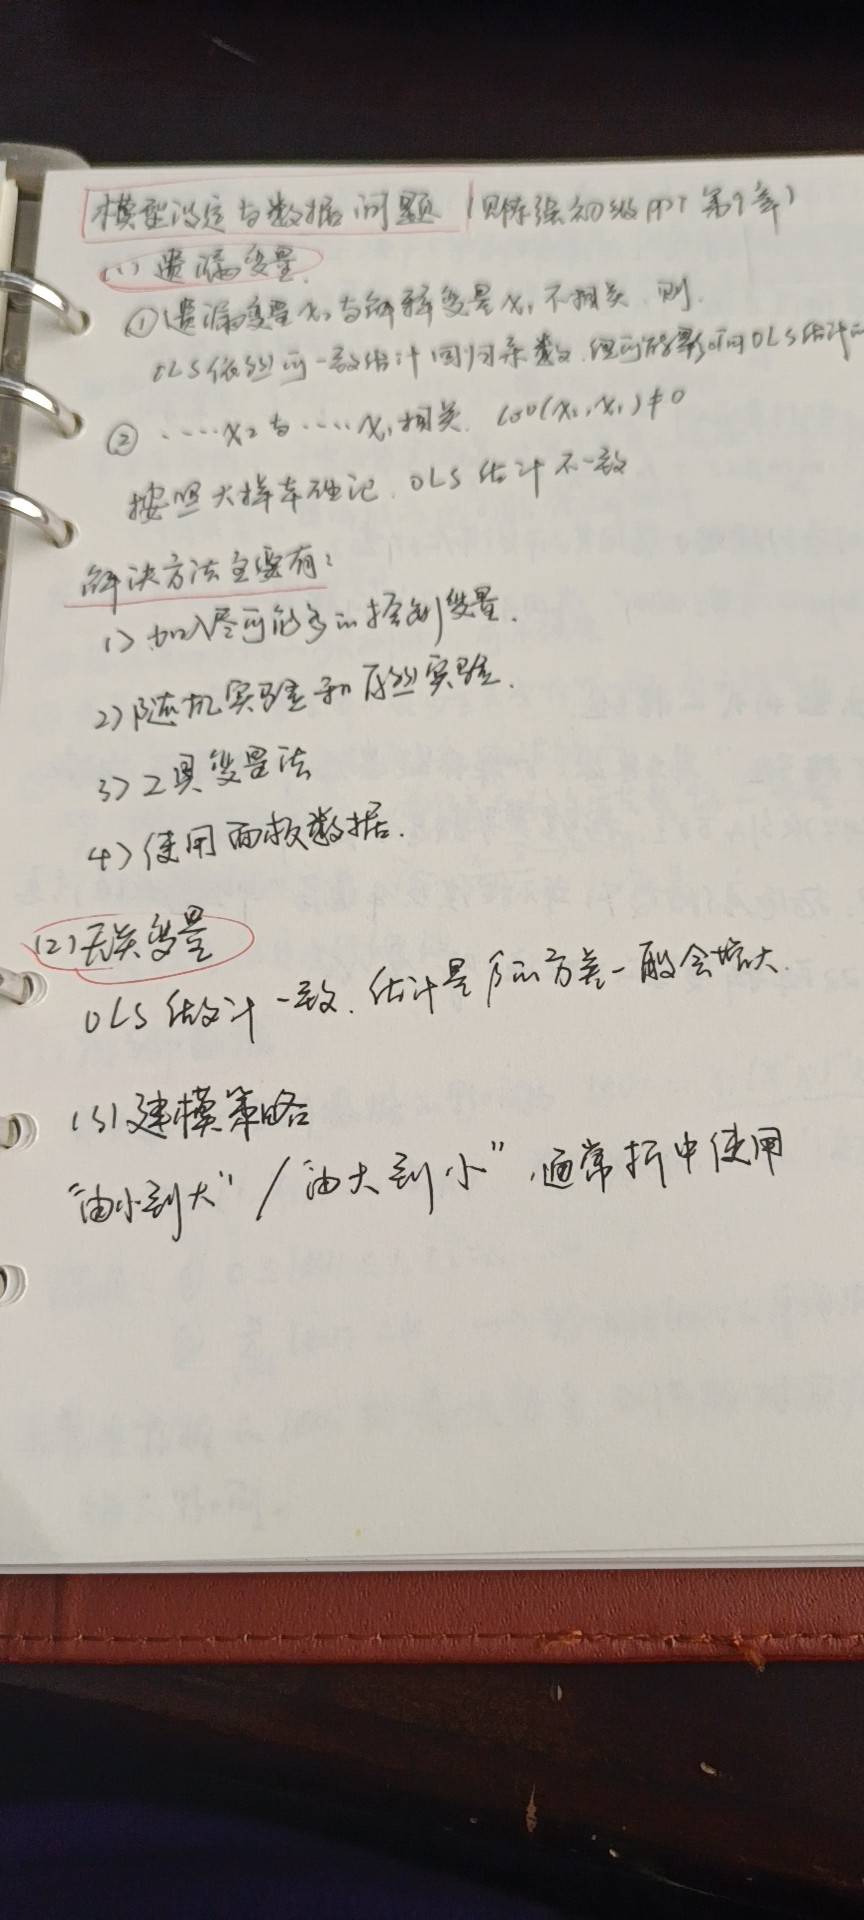 模型设定与数据问题 (见陈强初级PPT第9章)
(1) 遗漏变量.
① 遗漏变量x₂与解释变量x₁不相关 则.
OLS依然可一致估计回归系数,但可能影响OLS估计的
② ....x₂与....x₁相关. Cov(x₂,x₁)≠0
按照大样本理论,OLS估计不一致
解决方法主要有:
1) 加入尽可能多的控制变量.
2) 随机实验和自然实验.
3) 工具变量法
4) 使用面板数据.
(2) 无关变量
OLS估计一致,估计量β的方差一般会增大.
(3) 建模策略
“由小到大” / “由大到小”,通常折中使用